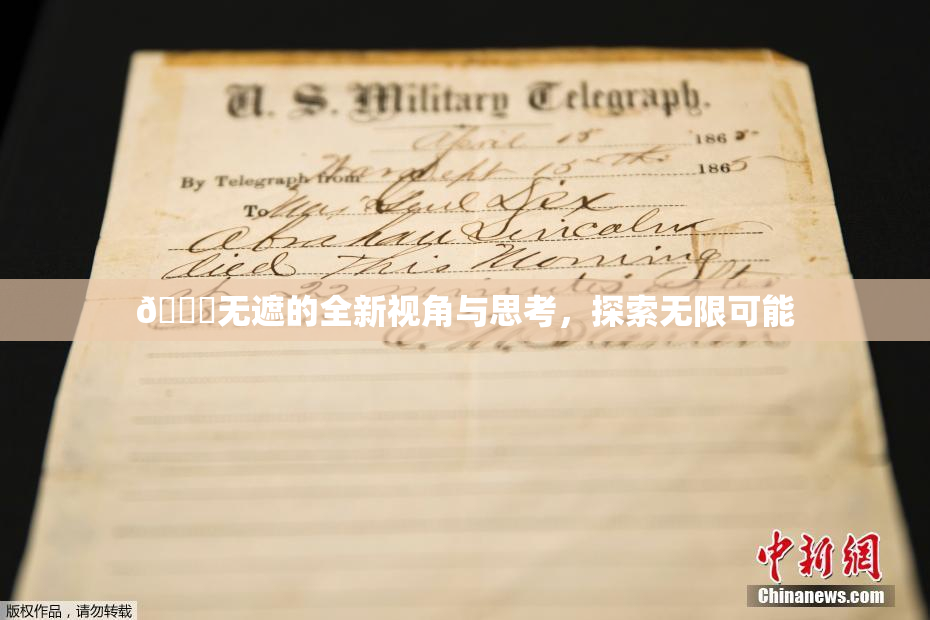 U. S. Military Telegraph.
April 15 1865
By Telegraph from War Dept 15th 1865
To Maj Genl Dix
Abraham Lincoln
died This Morning
at 22 minutes after
无遮的全新视角与思考，探索无限可能
E. M. Stanton
中新网
Chinanews.com
版权作品，请勿转载